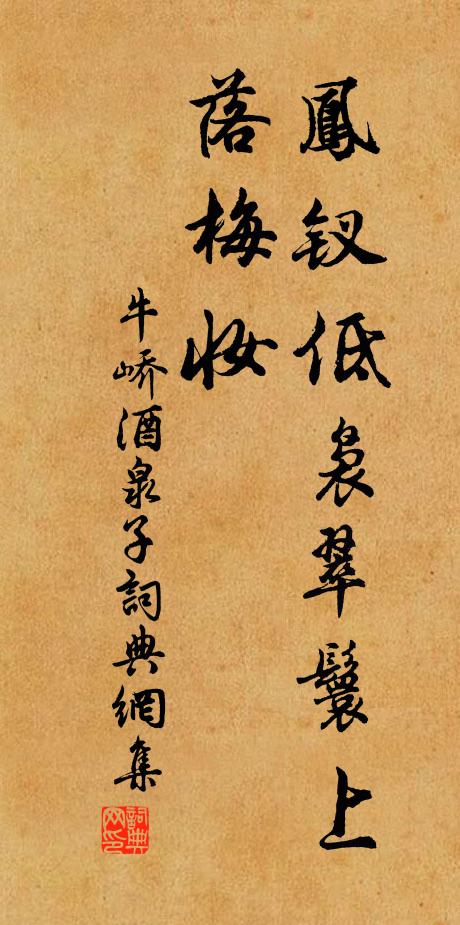 鳳钗低裊翠鬟上
落梅妆
牛峤酒泉子詞典網集
詞典网印